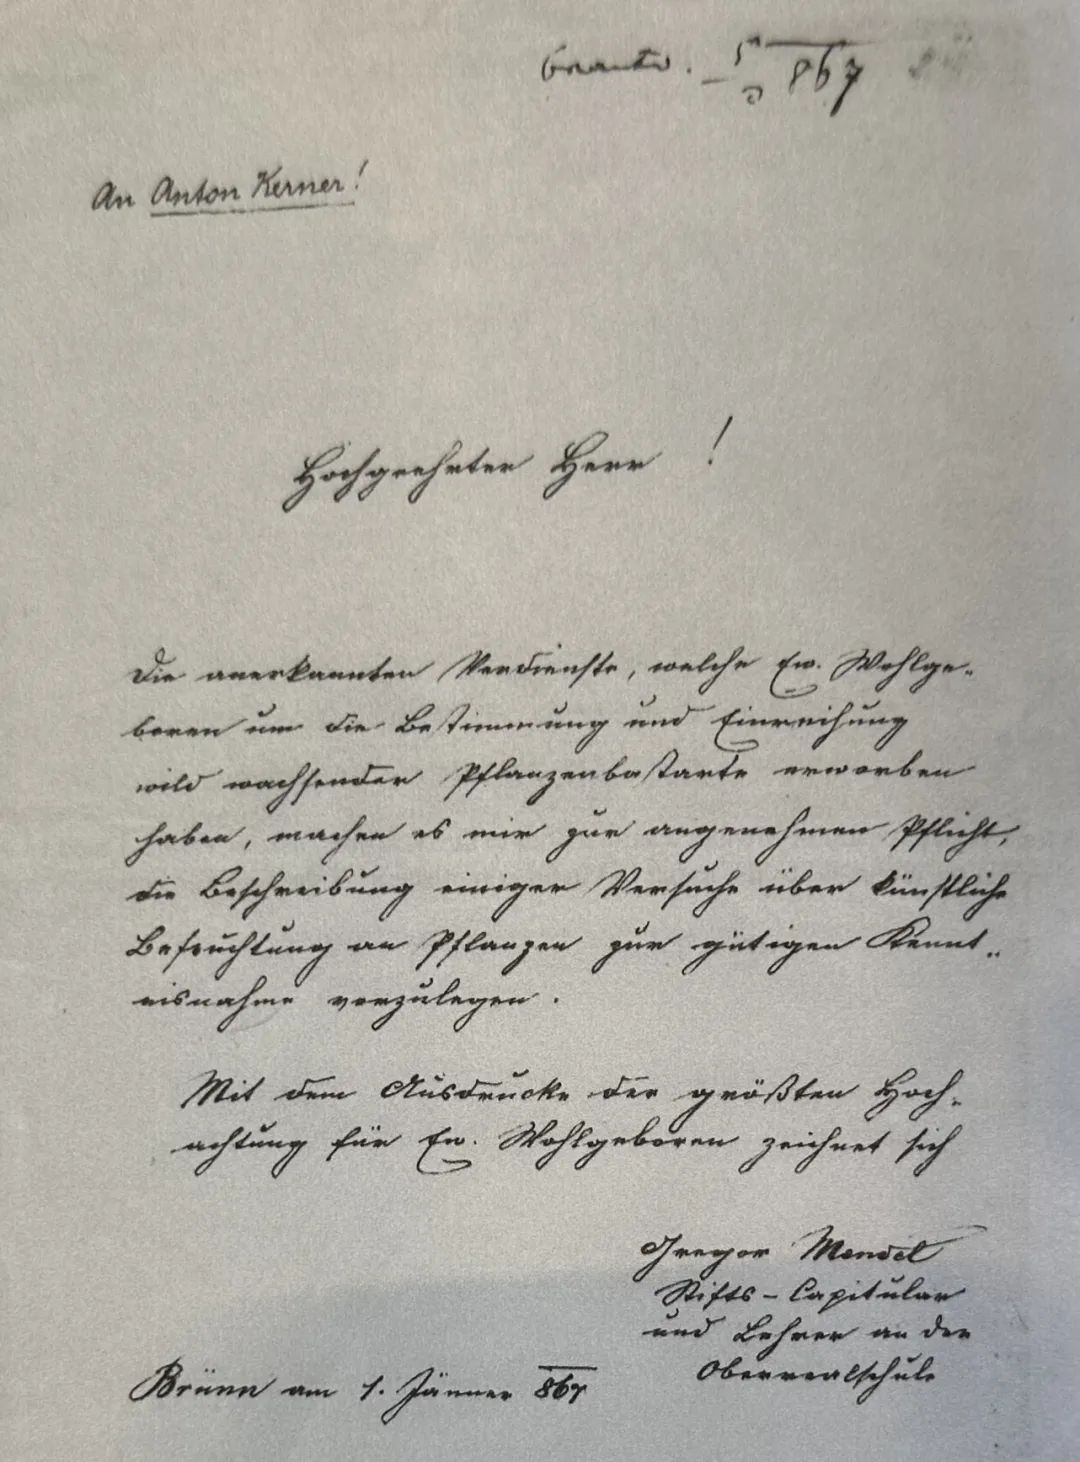 867
An Anton Kerner!
Hochgeehrter Herr !
Die anerkannten Verdienste, welche Ew. Wohlge-
boren um die Bestimmung und Einreihung
wild wachsender Pflanzenbastarte erworben
haben, machen es mir zur angenehmen Pflicht,
die Beschreibung einiger Versuche über künstliche
Befruchtung an Pflanzen zur gütigen Kennt-
nisnahme vorzulegen.
Mit dem Ausdrucke der größten Hoch-
achtung für Ew. Wohlgeboren zeichnet sich
Gregor Mendel
Stifts-Capitular
und Lehrer an der
Oberrealschule
Brünn am 1. Jänner 867